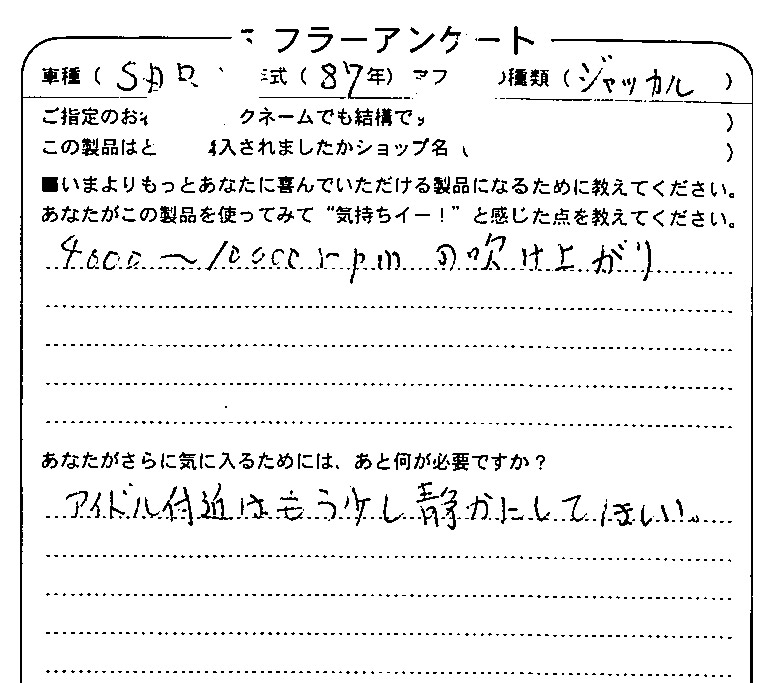 フラーアンケート
車種（ SDR 年式（ 87年） マフ の種類（ ジャッカル ）
ご指定のお クネームでも結構で ）
この製品はど 購入されましたかショップ名（ ）
■いまよりもっとあなたに喜んでいただける製品になるために教えてください。
あなたがこの製品を使ってみて“気持ちイー！”と感じた点を教えてください。
4000～10000rpmの吹け上がり
あなたがさらに気に入るためには、あと何が必要ですか？
アイドル付近はもう少し静かにしてほしい。